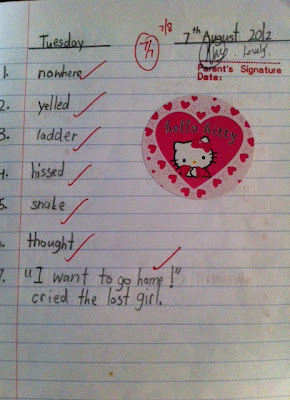 7/8
Tuesday
7/7
7th August 2012
Lovely.
Parent's Signature
Date:
1. nowhere
2. yelled
3. ladder
4. hissed
5. snake
6. thought
7. "I want to go home!"
cried the lost girl.
Hello Kitty